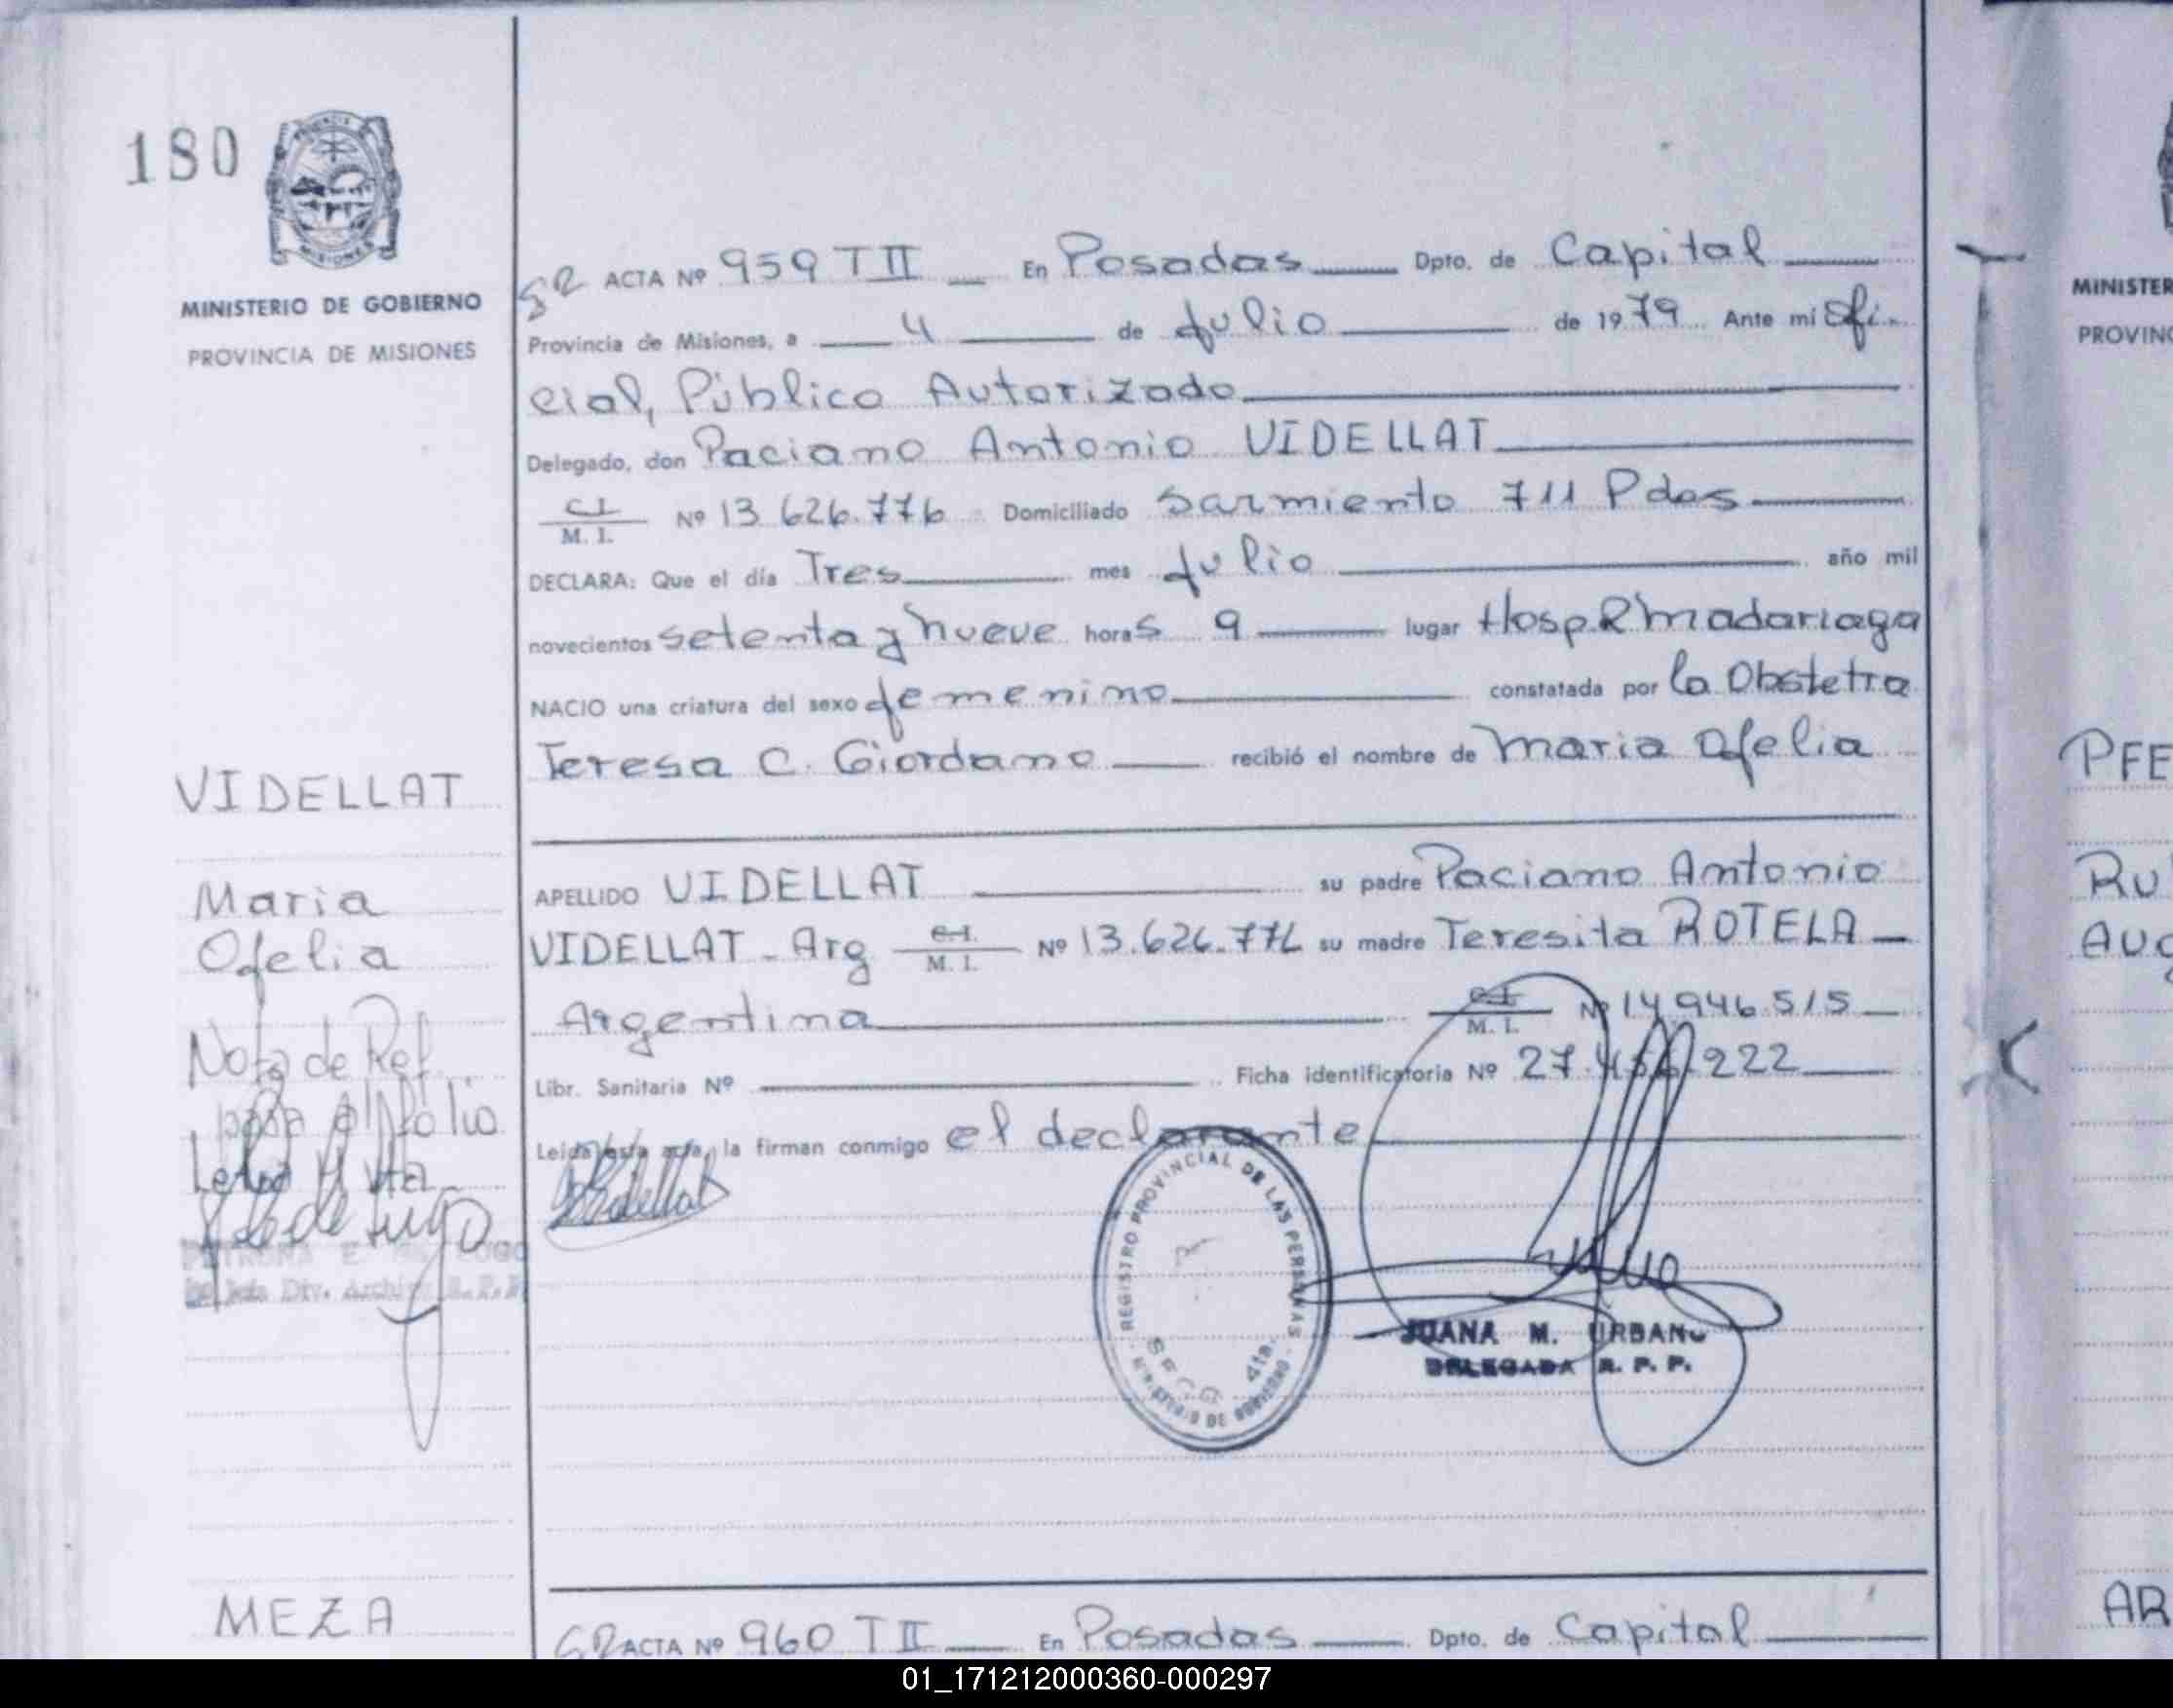 180
MINISTERIO DE GOBIERNO
PROVINCIA DE MISIONES
ACTA Nº 959 T II En Posadas Dpto. de Capital
Provincia de Misiones, a 4 de Julio de 1979 Ante mi Ofi-
cial, Público Autorizado
Delegado, don Paciano Antonio VIDELLAT
C.I. M. I. Nº 13 626.776 Domiciliado Sarmiento 711 Pdas
DECLARA: Que el día Tres mes Julio año mil
novecientos setenta y nueve horas 9 lugar Hosp R Madariaga
NACIO una criatura del sexo femenino constatada por la Obstetra
Teresa C. Giordano recibió el nombre de Maria Ofelia
APELLIDO VIDELLAT su padre Paciano Antonio
VIDELLAT - Arg C.I. M. I. Nº 13.626.776 su madre Teresita ROTELA
Argentina C.I. M. I. Nº 14 946.515
Libr. Sanitaria Nº Ficha identificatoria Nº 27. 222
Leida esta acta, la firman conmigo el declarante
VIDELLAT
Maria
Ofelia
Nota de Ref
pasa al folio
REGISTRO PROVINCIAL DE LAS PERSONAS
MINISTERIO DE GOBIERNO
SECC. 4ta.
JUANA M. URBANO
DELEGADA R. P. P.
MEZA
ACTA Nº 960 T II En Posadas Dpto. de Capital
MINISTER
PROVINC
PFE
RU
AUG
AR
01_171212000360-000297